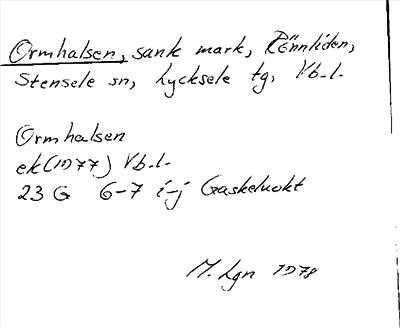 Ormhalsen, sank mark, Rönnliden,
Stensele sn, Lycksele tg, Vb.l.
Ormhalsen
ek (1977) Vb.l.
23 G 6-7 i-j Gaskeluokt
M. Lgn 1978